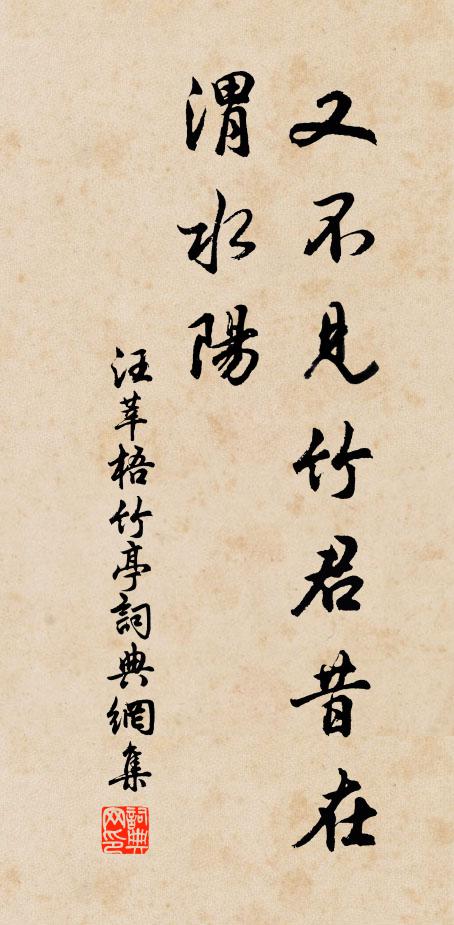 又不見竹君昔在
渭水陽
汪莘梧竹亭詞典網集
詞典网印